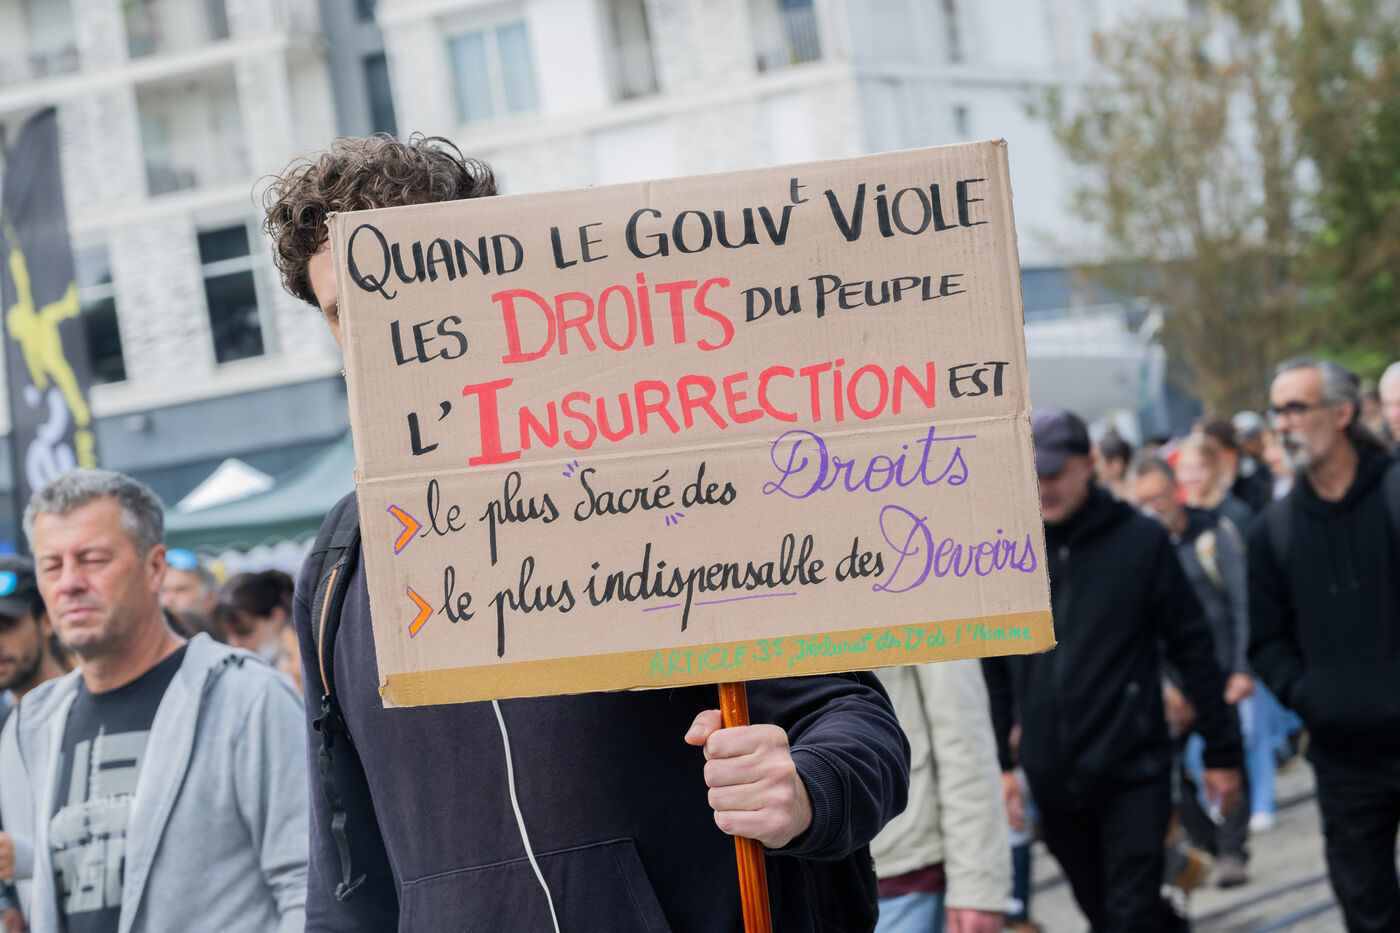 QUAND LE GOUVt VIOLE
LES DROITS DU PEUPLE
L'INSURRECTION EST
le plus "Sacré" des Droits
le plus indispensable des Devoirs
ARTICLE 35, Déclaratº du Dt de l'Homme